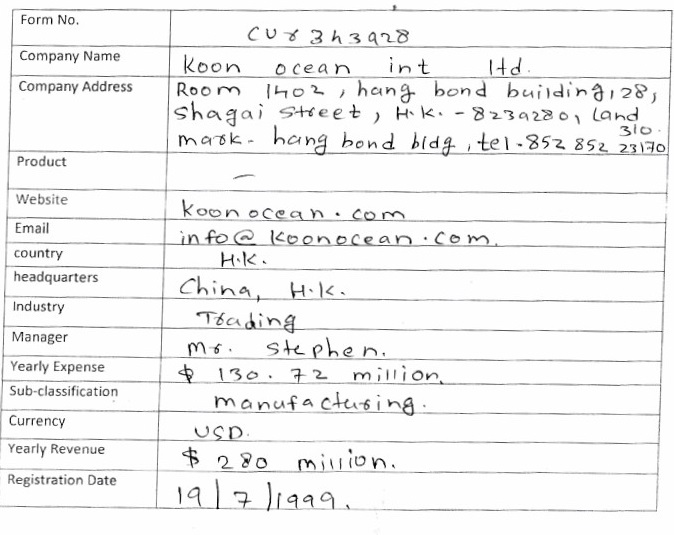 Form No. CUr3h3928
Company Name Koon ocean int ltd.
Company Address Room 1402, hang bond building, 28,
Shagai Street, H.K. - 8239280, Land
mark - hang bond bldg, tel - 852 852 23170
310.
Product —
Website koonocean.com
Email info@koonocean.com.
country H.K.
headquarters China, H.K.
Industry Trading
Manager Mr. Stephen.
Yearly Expense $ 130.72 million.
Sub-classification manufacturing.
Currency USD.
Yearly Revenue $ 280 million.
Registration Date 19/7/1999.